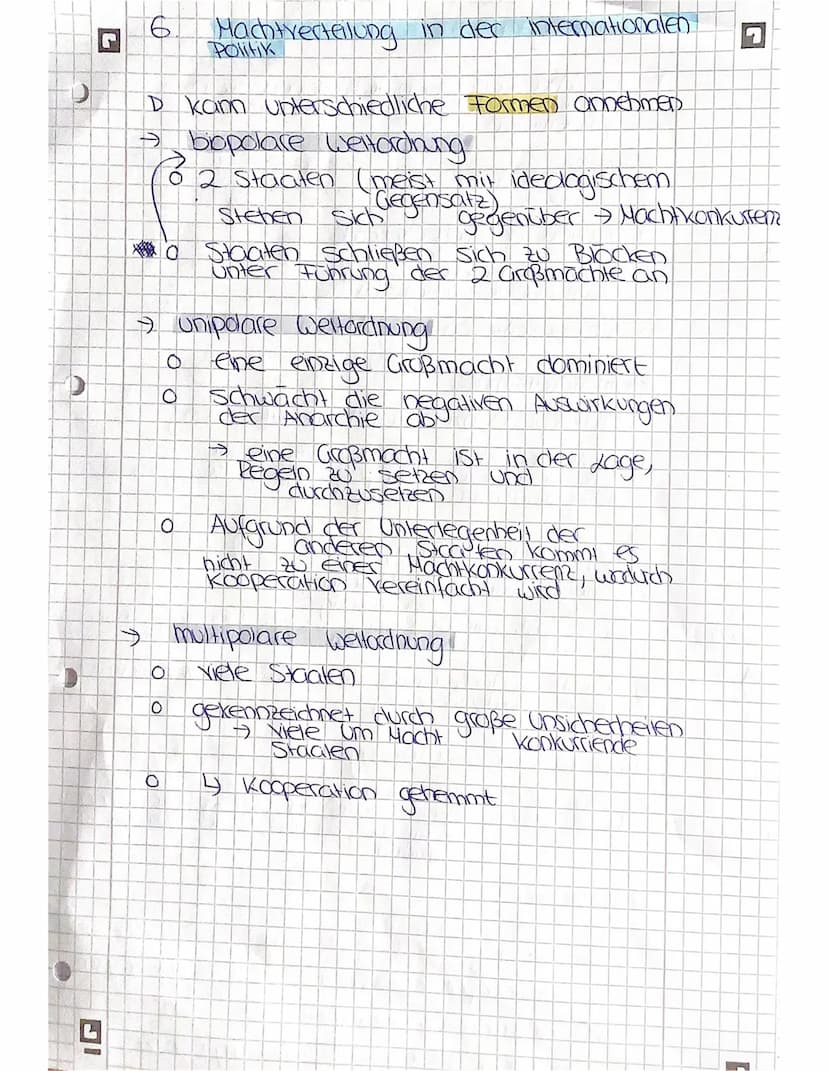 6. Machtverteilung in der internationalen
Politik
D kann unterschiedliche Formen annehmen
→ biopolare Weltordnung
o 2 Staaten (meist mit ideologischem
Gegensatz)
stehen sich gegenüber → Machtkonkurrenz
o Staaten schließen sich zu Blöcken
unter Führung der 2 Großmächte an
→ unipolare Weltordnung
o eine einzige Großmacht dominiert
o schwächt die negativen Auswirkungen
der Anarchie ab
→ eine Großmacht ist in der Lage,
Regeln zu setzen und
durchzusetzen
o Aufgrund der Unterlegenheit der
anderen Staaten kommt es
nicht zu einer Machtkonkurrenz, wodurch
Kooperation vereinfacht wird
→ multipolare Weltordnung
o viele Staaten
o gekennzeichnet durch große Unsicherheiten
→ viele um Macht konkurriende
Staaten
o ↳ Kooperation gehemmt